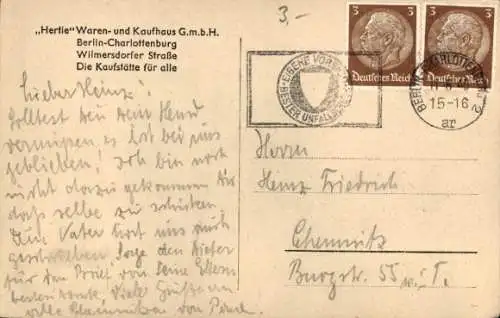 „Hertie" Waren- und Kaufhaus G.m.b.H.
Berlin-Charlottenburg
Wilmersdorfer Straße
Die Kaufstätte für alle
3,-
3
3
Deutsches Reich
Deutsches Reich
EIGENE VOR
UNFALL
BERLIN-CHARLOTTENBURG 2
15-16
ar
Lieber Heinz!
Solltest Du Dein Hemd
vermissen, es ist bei uns
geblieben! Ich bin noch
nicht dazu gekommen Dir
das selbe zu schicken.
Dein Vater hat uns auch
geschrieben. Sage den
für den Brief von seine Eltern
besten Dank. Viele Grüße
alle
Herrn
Heinz Friedrich
Chemnitz
Burgstr. 55